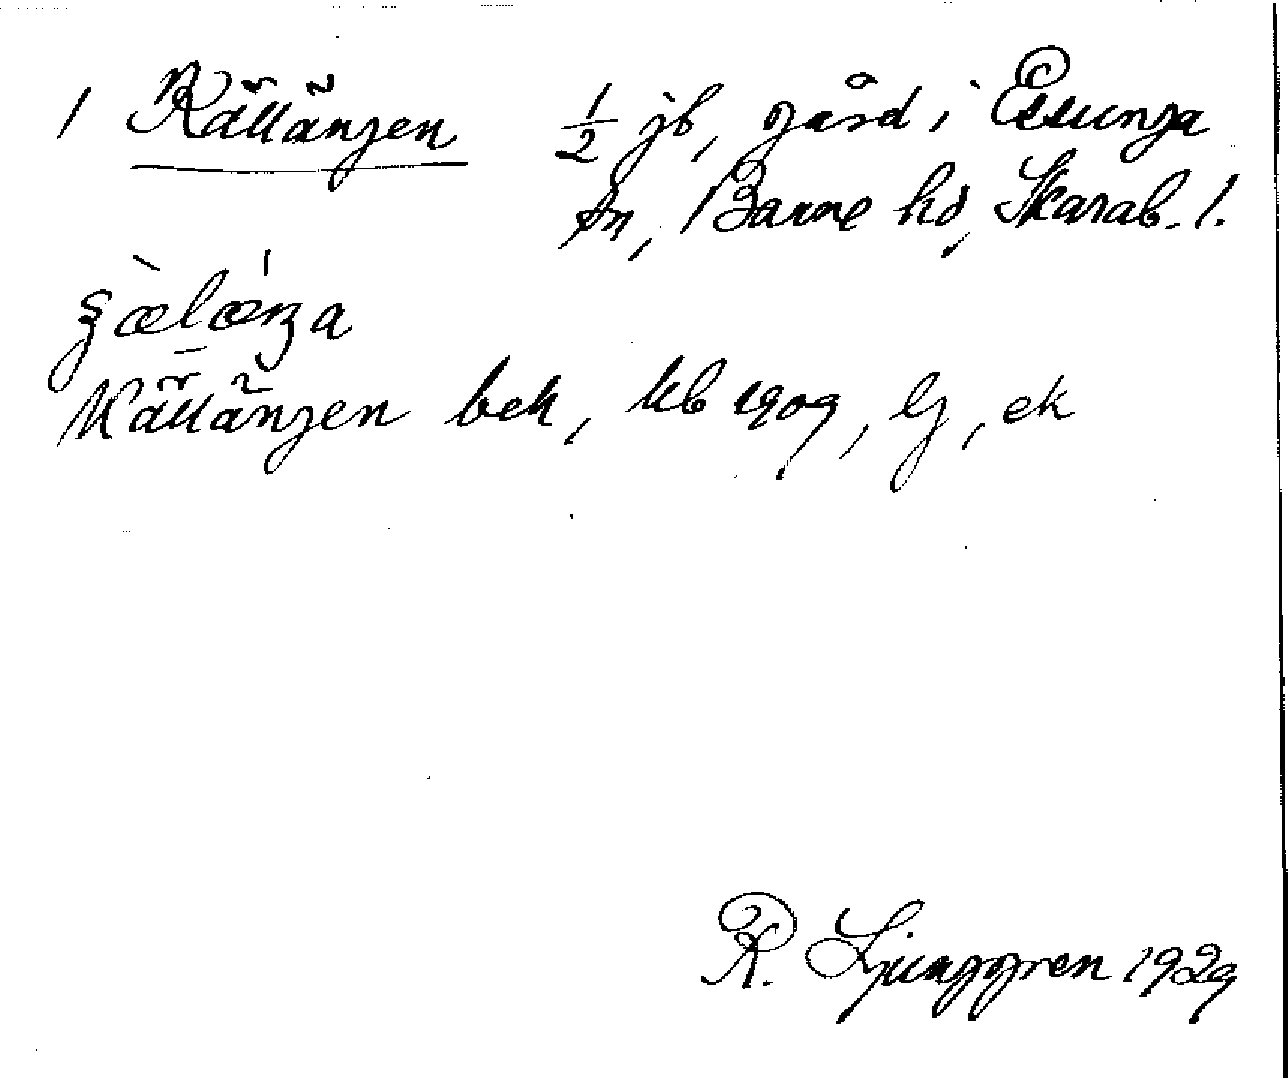 1 Källängen ½ jb, gård i Essunga
sn, Barne hd, Skarab. l.
Källängen bek, kb 1909, lj, ek
R. Ljunggren 1929